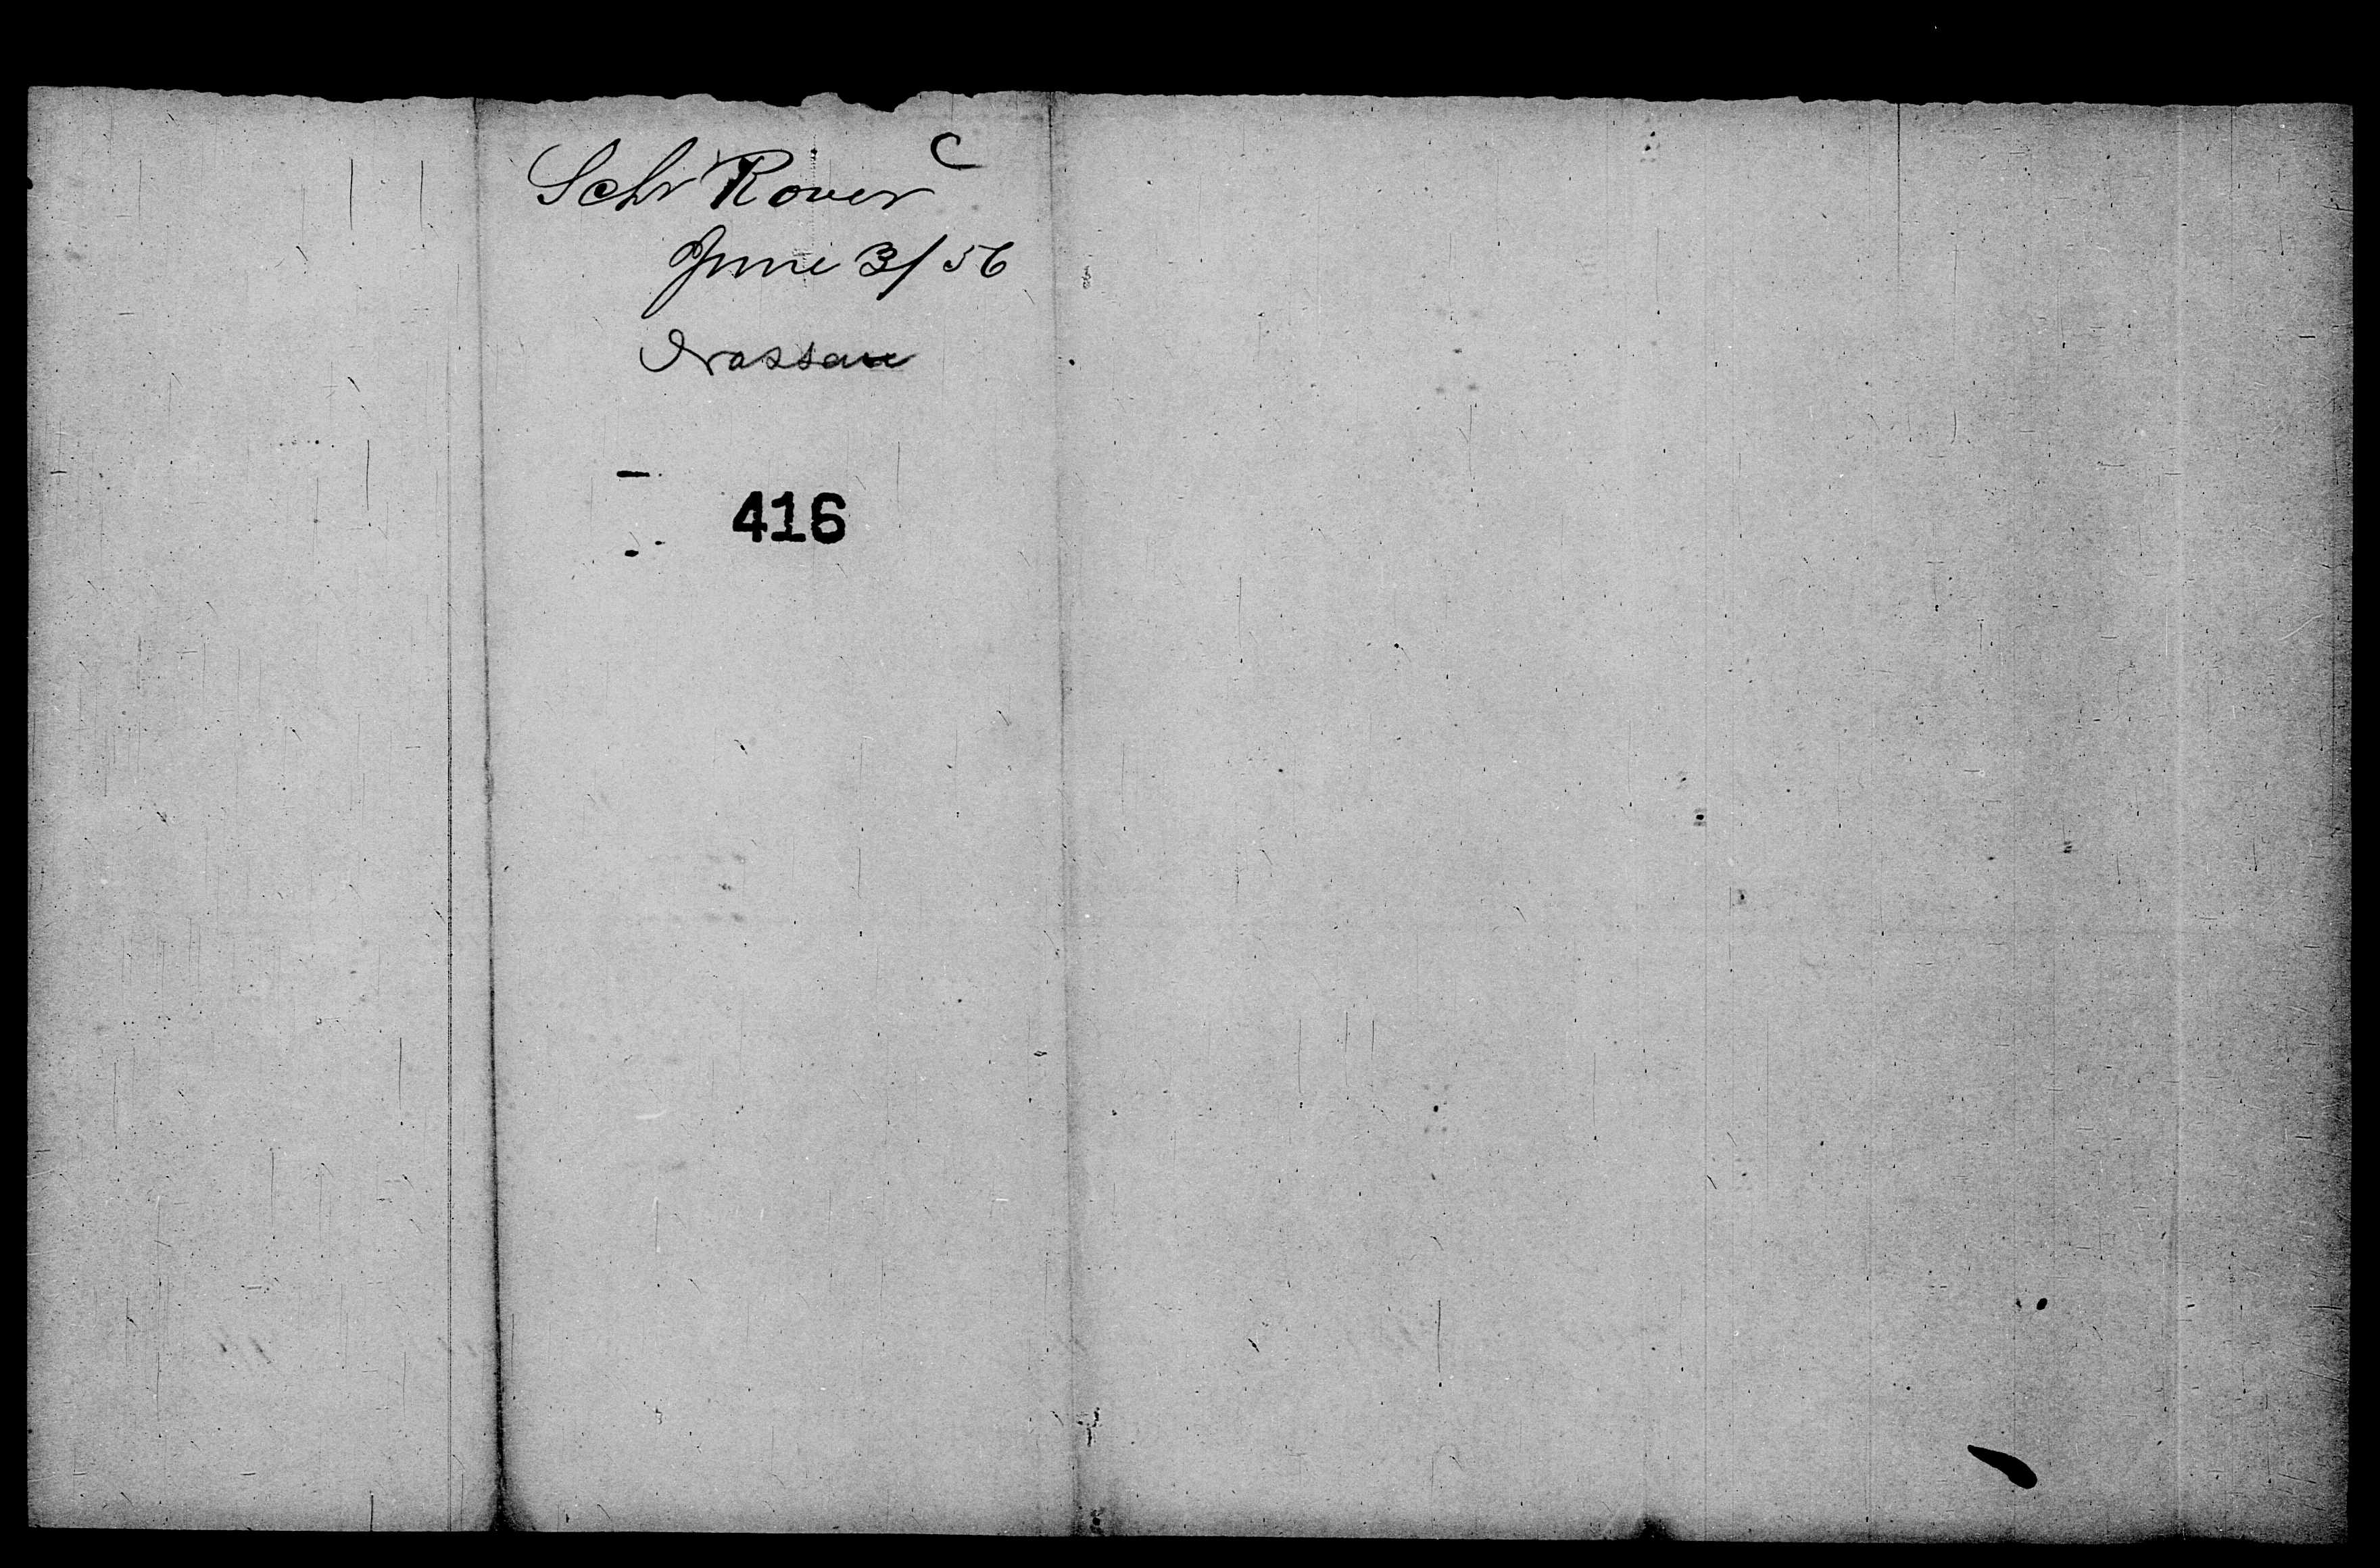 C
Schr Rover
June 3/56
Nassau
416